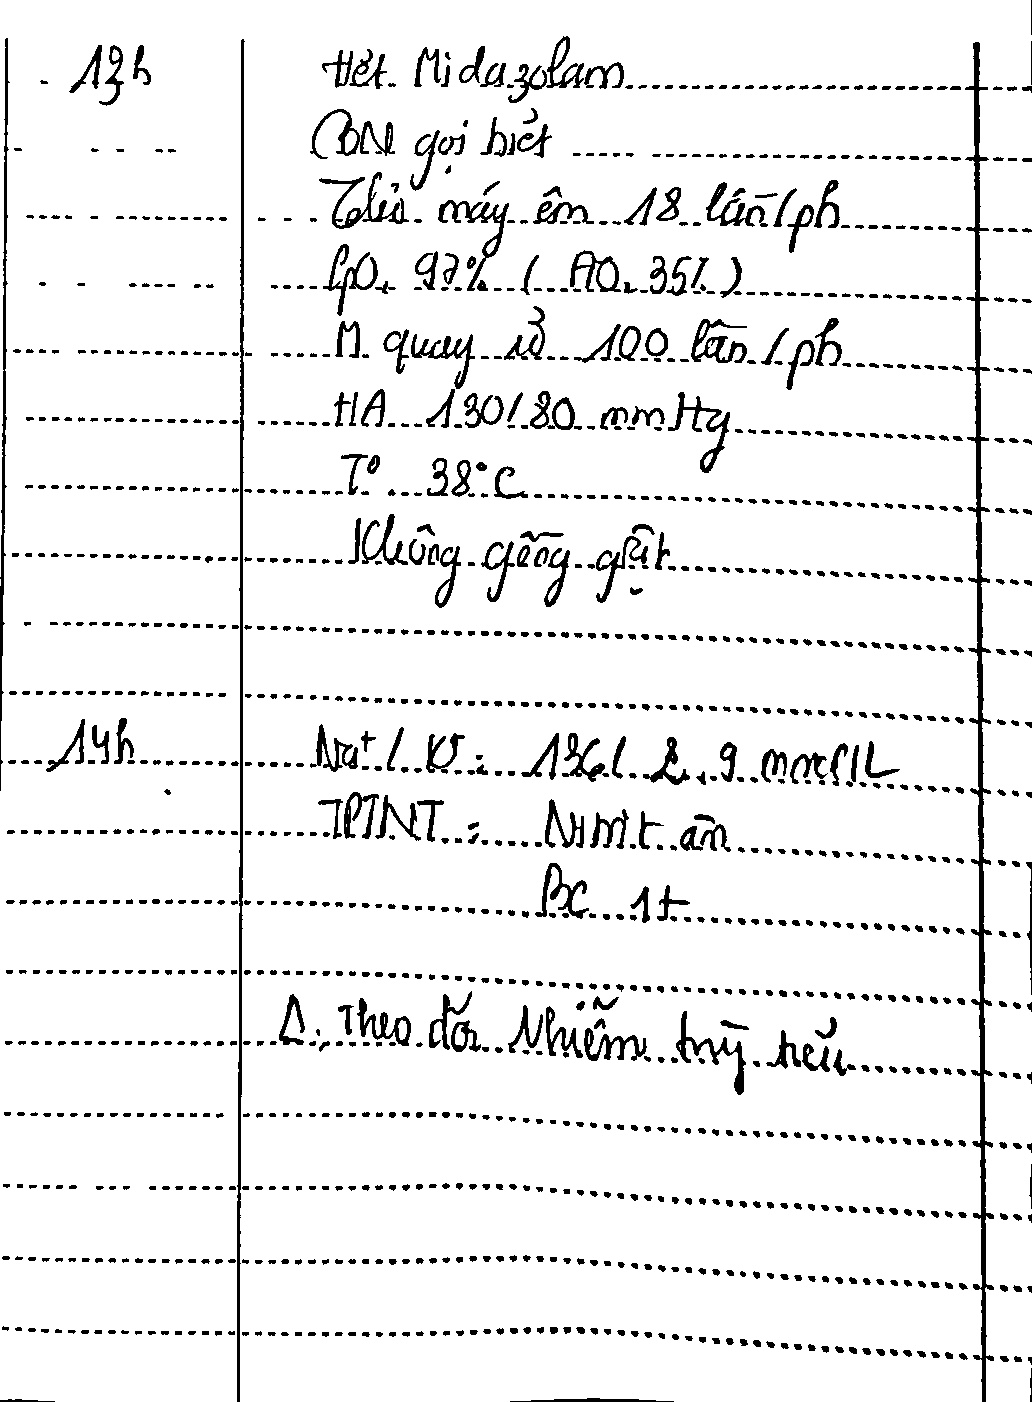 13h Hết Midazolam
BN gọi biết
Thở máy êm 18 lần/ph
SpO₂ 97% ( FiO₂ 35% )
M quay rõ 100 lần/ph
HA 130/80 mmHg
T° 38°C
Không gồng giật
14h Na⁺/ K⁺: 136/ 2,9 mmol/L
TPTNT: Nitrit âm
BC 1+
Δ: Theo dõi Nhiễm trùng tiểu